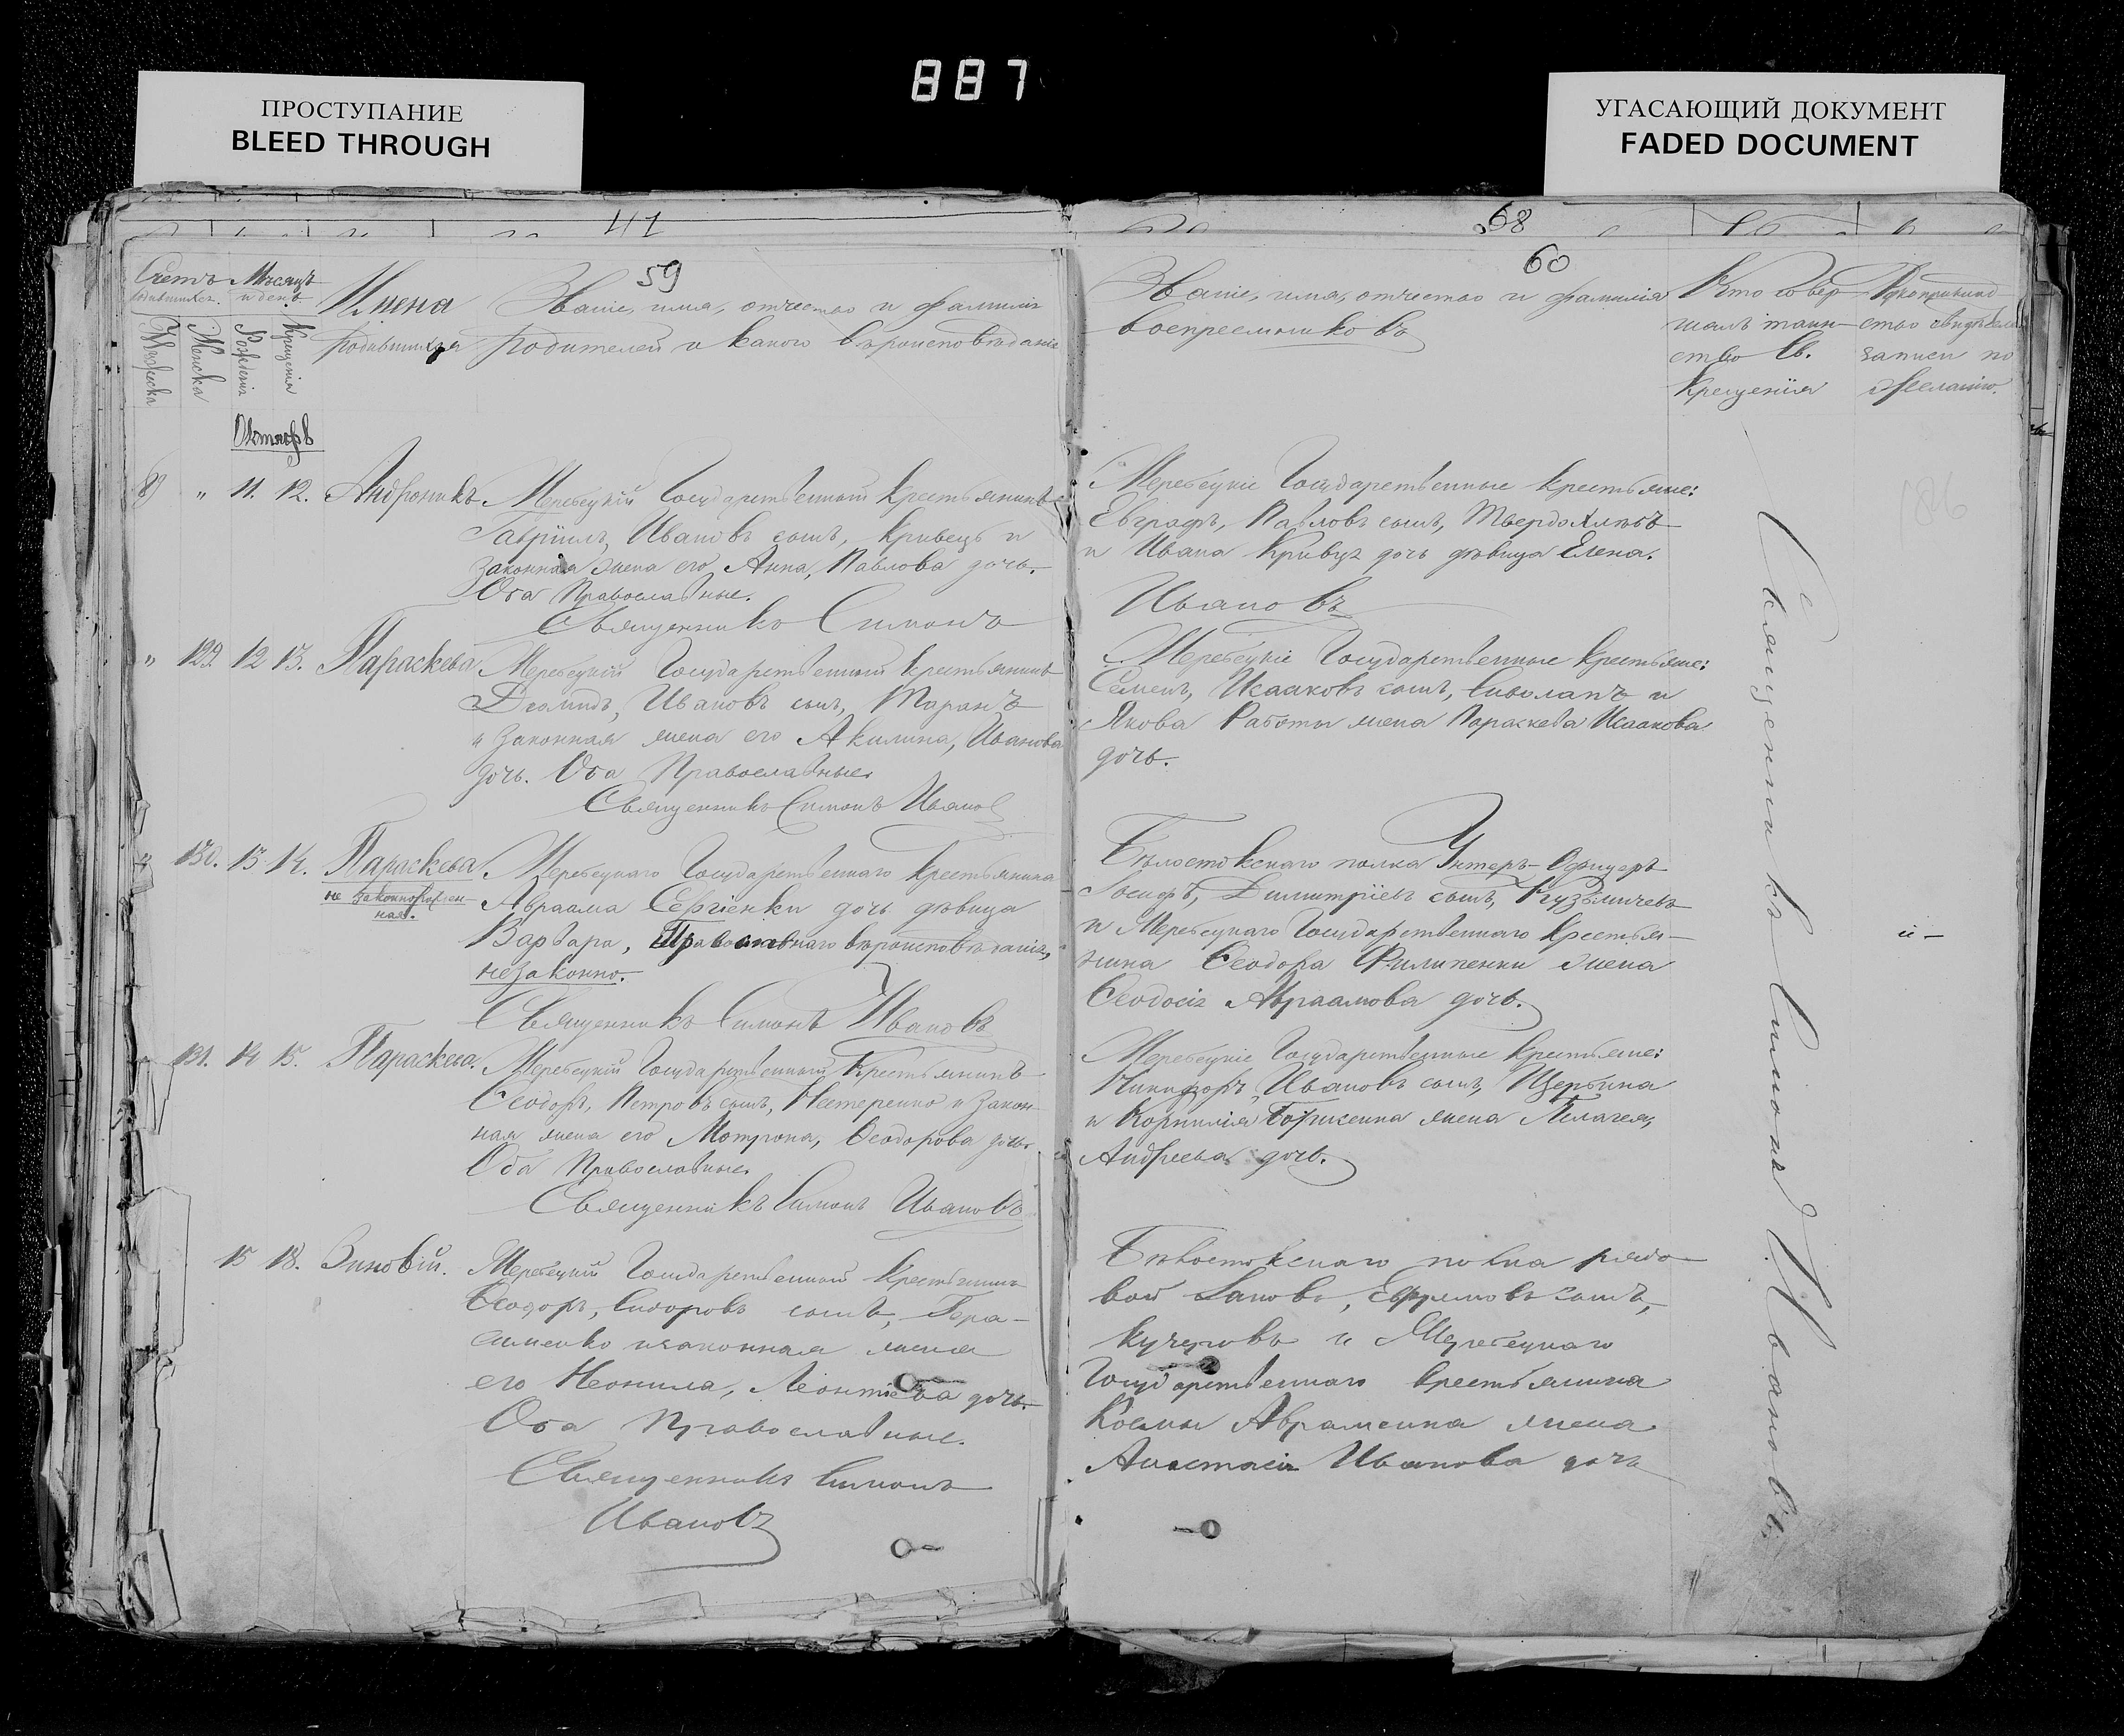 887
ПРОСТУПАНИЕ
BLEED THROUGH
УГАСАЮЩИЙ ДОКУМЕНТ
FADED DOCUMENT
41
59
Счетъ родившихся.
Мѣсяцъ и день.
Мужеска
Женска
Рожденія
Крещенія
Имена
родившихся
Званіе, имя, отчество и фамилія
родителей и какого вѣроисповѣданія
Октябрь
" 11. 12. Андроникъ
Меребецкій Государственный крестьянинъ
Гавріилъ, Ивановъ сынъ, Кривецъ и
законная жена его Анна, Павлова дочь.
Оба Православные.
Священникъ Симонъ
" 129. 12 13. Параскева
Меребецкій Государственный крестьянинъ
Діомидъ, Ивановъ сынъ, Таранъ
и законная жена его Акилина, Иванова
дочь. Оба Православные.
Священникъ Симонъ Ивановъ
130. 13 14. Параскева
не законнорожден-
ная.
Меребецкаго Государственнаго крестьянина
Авраама Сергіенки дочь дѣвица
Варвара, Православнаго вѣроисповѣданія,
незаконно.
Священникъ Симонъ Ивановъ
131. 14 15. Параскева.
Меребецкій Государственный крестьянинъ
Ѳеодоръ, Петровъ сынъ, Нестеренко и закон-
ная жена его Мотрона, Ѳеодорова дочь.
Оба Православные.
Священникъ Симонъ Ивановъ
15 18. Зиновій.
Меребецкій Государственный крестьянинъ
Ѳеодоръ, Сидоровъ сынъ, Гера-
сименко и законная жена
его Неонила, Леонтіева дочь.
Оба Православные.
Священникъ Симонъ
Ивановъ
68
60
Званіе, имя, отчество и фамилія
воспреемниковъ
Кто совер-
шалъ таин-
ство Св.
Крещенія
записи по
желанію.
Меребецкіе Государственные крестьяне:
Евграфъ, Павловъ сынъ, Твердохлѣбъ
и Ивана Кривца дочь дѣвица Елена.
Ивановъ
Меребецкіе Государственные крестьяне:
Семенъ, Исааковъ сынъ, Сиволапъ и
Якова Работы жена Параскева Исаакова
дочь.
Бѣлостокскаго полка Унтеръ-Офицеръ
Іосифъ, Димитріевъ сынъ, Кузьмичевъ
и Меребецкаго Государственнаго крестья-
нина Ѳеодора Филипенки жена
Ѳеодосія Авраамова дочь.
Меребецкіе Государственные крестьяне:
Никифоръ, Ивановъ сынъ, Щербина
и Корнилія жена Пелагея,
Андреева дочь.
Бѣлостокскаго полка рядо-
вой Ефремовъ сынъ,
Кучеровъ и Меребецкаго
Государственнаго крестьянина
Косьмы Авраменка жена
Анастасія Иванова дочь
Священникъ Симонъ Ивановъ